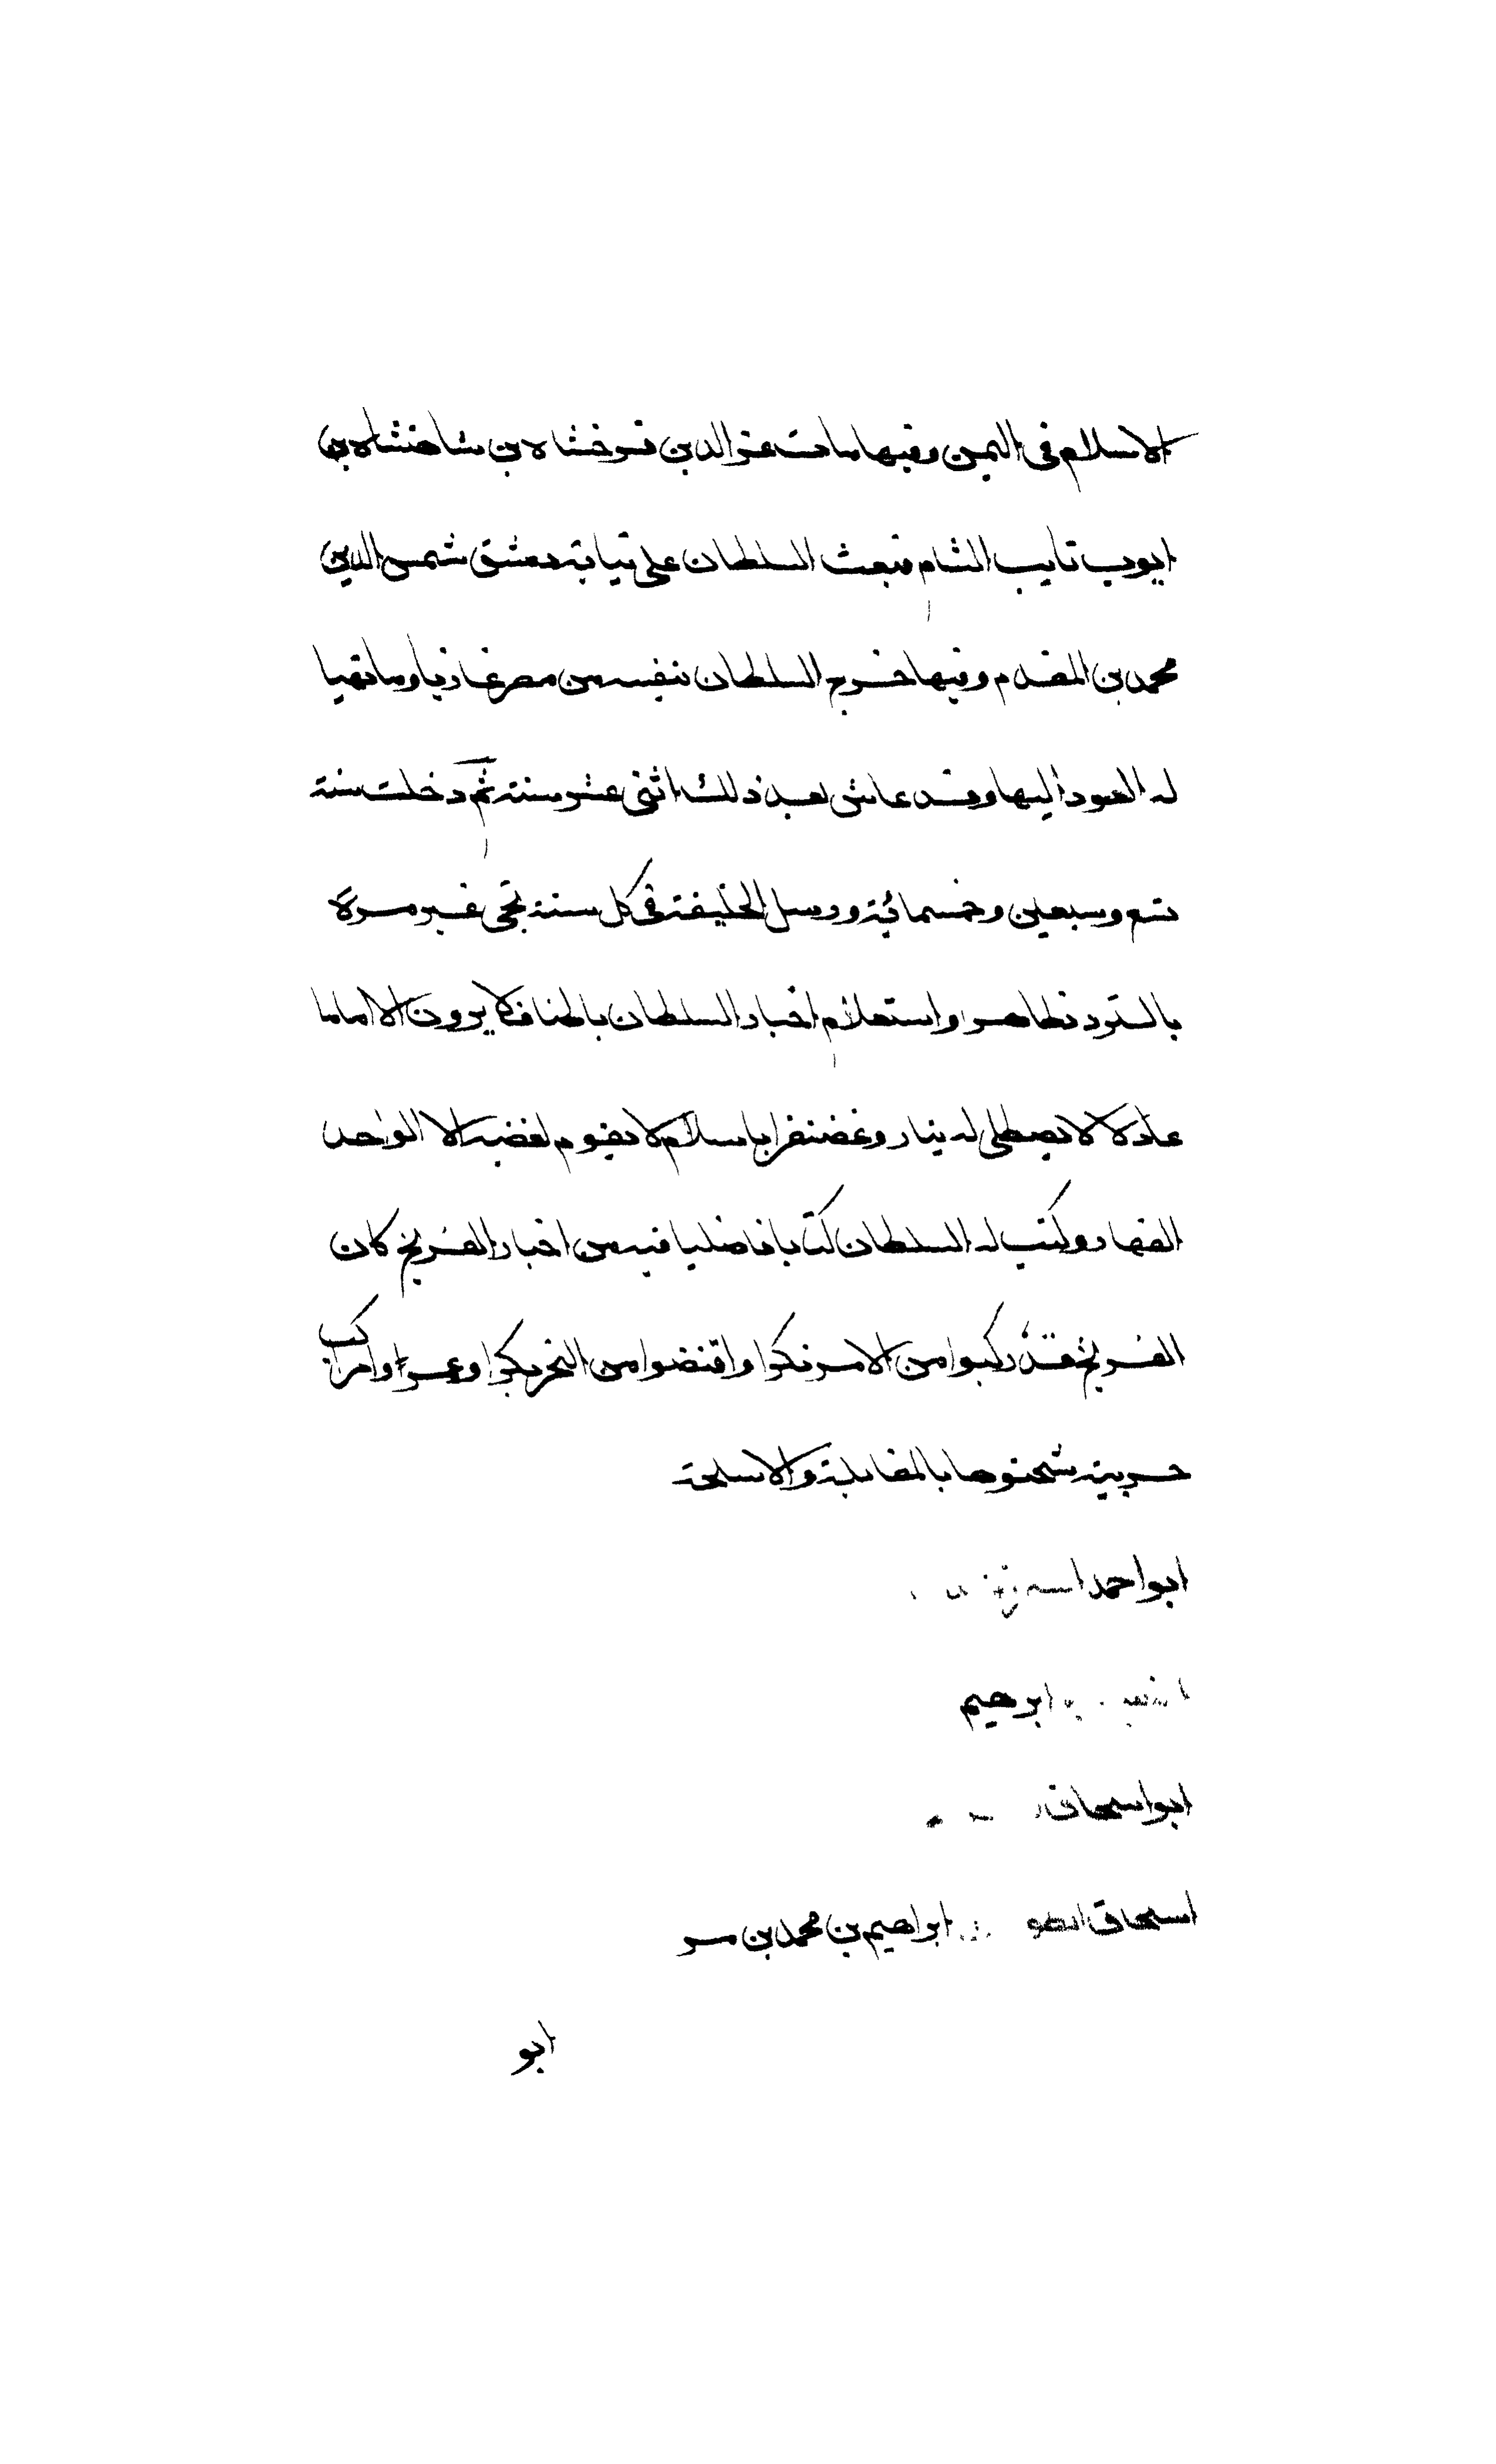 الاسلام فى اليمن وفيها مات عز الدين فرخشاه بن شاهنشاه بن
ايوب نايب الشام فبعث السلطان على نيابة دمشق شمس الدين
محمد بن المقدم وفيها خرج السلطان بنفسه من مصر غازيا وما تهيا
له العود اليها وقد عاش بعد ذلك اثنى عشر سنة ثم دخلت سنة
تسع وسبعين وخمسمائة ورسل الخليفة فى كل سنة تجى غير مرة
بالتردد ظاهرا واستعلام اخبار السلطان باطنا فلا يرون الا اماما
عادلا لا يصطلى له بنار وغضنفرا باسلام لا يقوم لغضبه الا الواحد
القهار وكتب له السلطان كتابا فاضليا فيه من اخبار الفرنج كان
الفرنج قد ركبوا من الامر نكرا واقتضوا من البحر بكرا وعمروا مراكب
حربية شحنوها بالمقاتلة والاسلحة
ابو احمد
ابرهيم
ابو اسحاق
اسحاق ابراهيم بن محمد بن
ابو